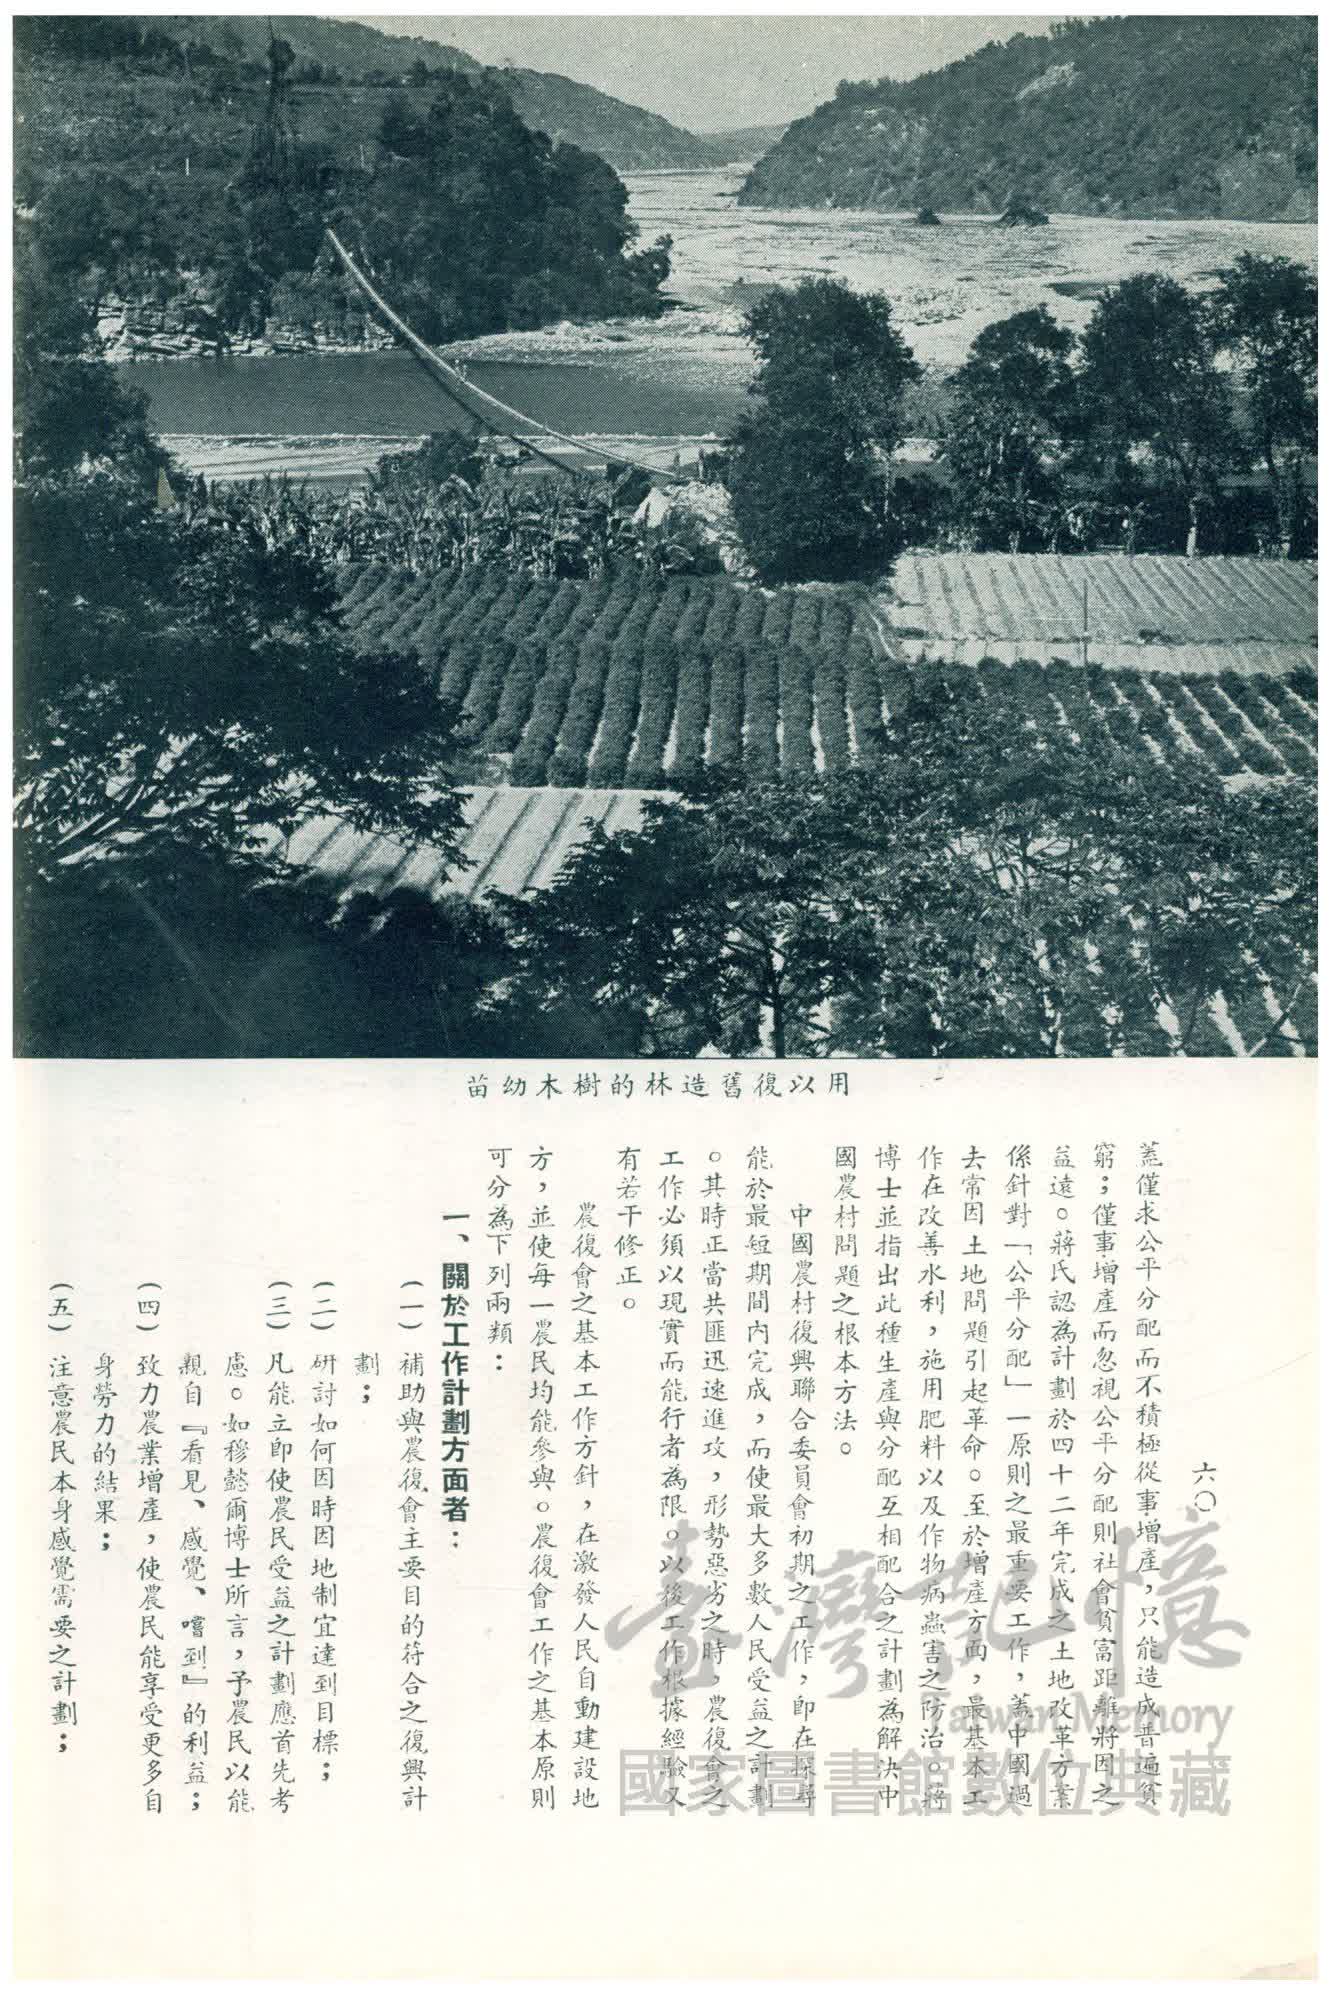 用以復舊造林的樹木幼苗
六〇
蓋僅求公平分配而不積極從事增產，只能造成普遍貧
窮；僅事增產而忽視公平分配則社會貧富距離將因之
益遠。蔣氏認為計劃於四十二年完成之土地改革方案
係針對「公平分配」一原則之最重要工作，蓋中國過
去常因土地問題引起革命。至於增產方面，最基本工
作在改善水利，施用肥料以及作物病蟲害之防治。蔣
博士並指出此種生產與分配互相配合之計劃為解決中
國農村問題之根本方法。
中國農村復興聯合委員會初期之工作，即在探尋
能於最短期間內完成，而使最大多數人民受益之計劃
。其時正當共匪迅速進攻，形勢惡劣之時，農復會之
工作必須以現實而能行者為限。以後工作根據經驗又
有若干修正。
農復會之基本工作方針，在激發人民自動建設地
方，並使每一農民均能參與。農復會工作之基本原則
可分為下列兩類：
一、關於工作計劃方面者：
(一)補助與農復會主要目的符合之復興計
劃；
(二)研討如何因時因地制宜達到目標；
(三)凡能立即使農民受益之計劃應首先考
慮。如穆懿爾博士所言，予農民以能
親自『看見、感覺、嚐到』的利益；
(四)致力農業增產，使農民能享受更多自
身勞力的結果；
(五)注意農民本身感覺需要之計劃；
臺灣記憶
Taiwan Memory
國家圖書館數位典藏